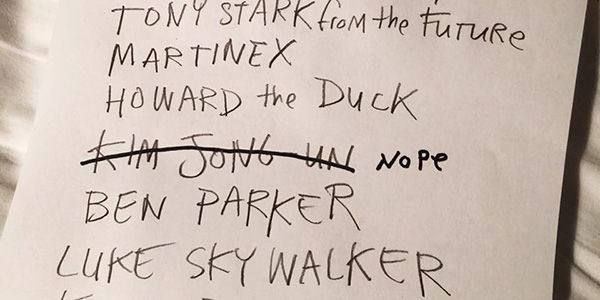 TONY STARK from the FUTURE
MARTINEX
HOWARD the DUCK
KIM JONG UN NOPE
BEN PARKER
LUKE SKYWALKER